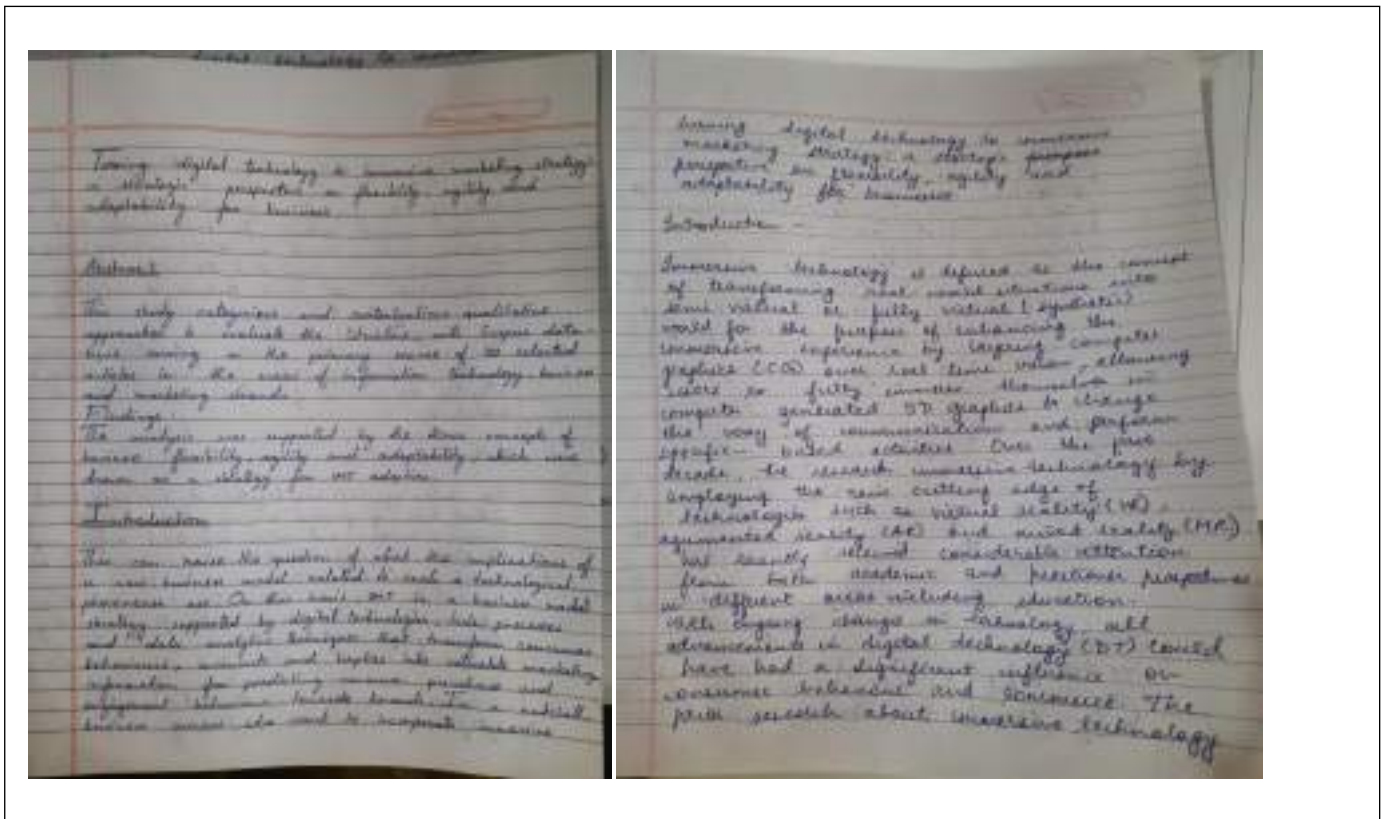 digital technology to
Turning digital technology to immersive marketing strategy
a strategic perspective on flexibility, agility and
adaptability for business
Abstract
This study categorises and contextualises qualitative
approaches to evaluate the literature, with Scopus data-
base serving as the primary source of selected
articles in the areas of information technology business
and marketing
Findings
The analysis was supported by the three concepts of
business flexibility, agility and adaptability, which were
drawn as a strategy for adoption
Introduction
This can raise the question of what the implications of
a new business model related to such a technological
phenomenon are. On this basis IMT is a business model
strategy supported by digital technologies, tools processes
and data analytics techniques that transform consumer
behaviours, and replies into valuable marketing
information for predicting purchase and
engagement behaviour towards brands. In a nutshell
business owners also need to incorporate immersive
turning digital technology to immersive
marketing strategy: a strategic
perspective on flexibility, agility and
adaptability for businesses
Introduction -
Immersive technology is defined as the concept
of transforming real world situations into
semi virtual or fully virtual (synthetic)
world for the purpose of enhancing the
immersive experience by layering computer
graphics (CG) over real time vision, allowing
users to fully immerse themselves in
computer generated 3D graphics to change
the way of communication and perform
specific- based activities Over the past
decade, the research immersive technology by
employing the new cutting edge of
technologies such as virtual reality (VR),
agumented reality (AR) and mixed reality (MR)
has recently received considerable attention
from both academic and perspectives
in different areas including education.
With ongoing change in technology and
advancements in digital technology (DT)
have had a significant influence on
consumer behaviour and commerce. The
prior research about immersive technology